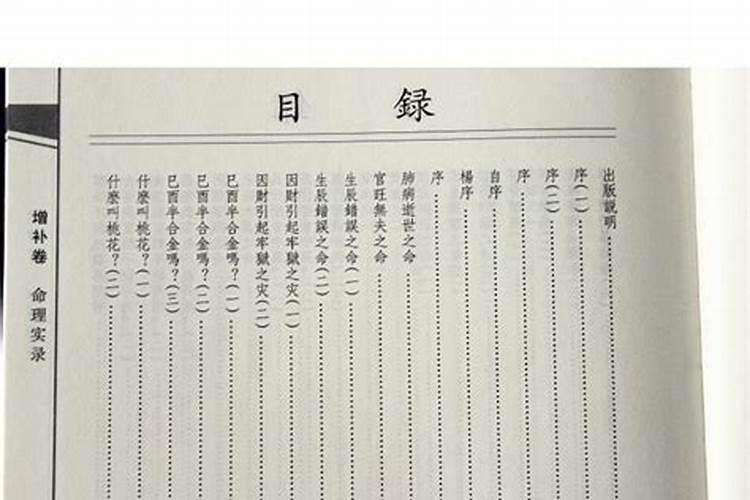 目録
出版説明
序(一)
序(二)
序
自序
楊序
序
肺病逝世之命
官旺無夫之命
生辰錯誤之命(一)
生辰錯誤之命(二)
因財引起牢獄之灾(一)
因財引起牢獄之灾(二)
巳酉半合金嗎?(一)
巳酉半合金嗎?(二)
巳酉半合金嗎?(三)
什麽叫桃花?(一)
什麽叫桃花?(二)
增补卷 命理实录